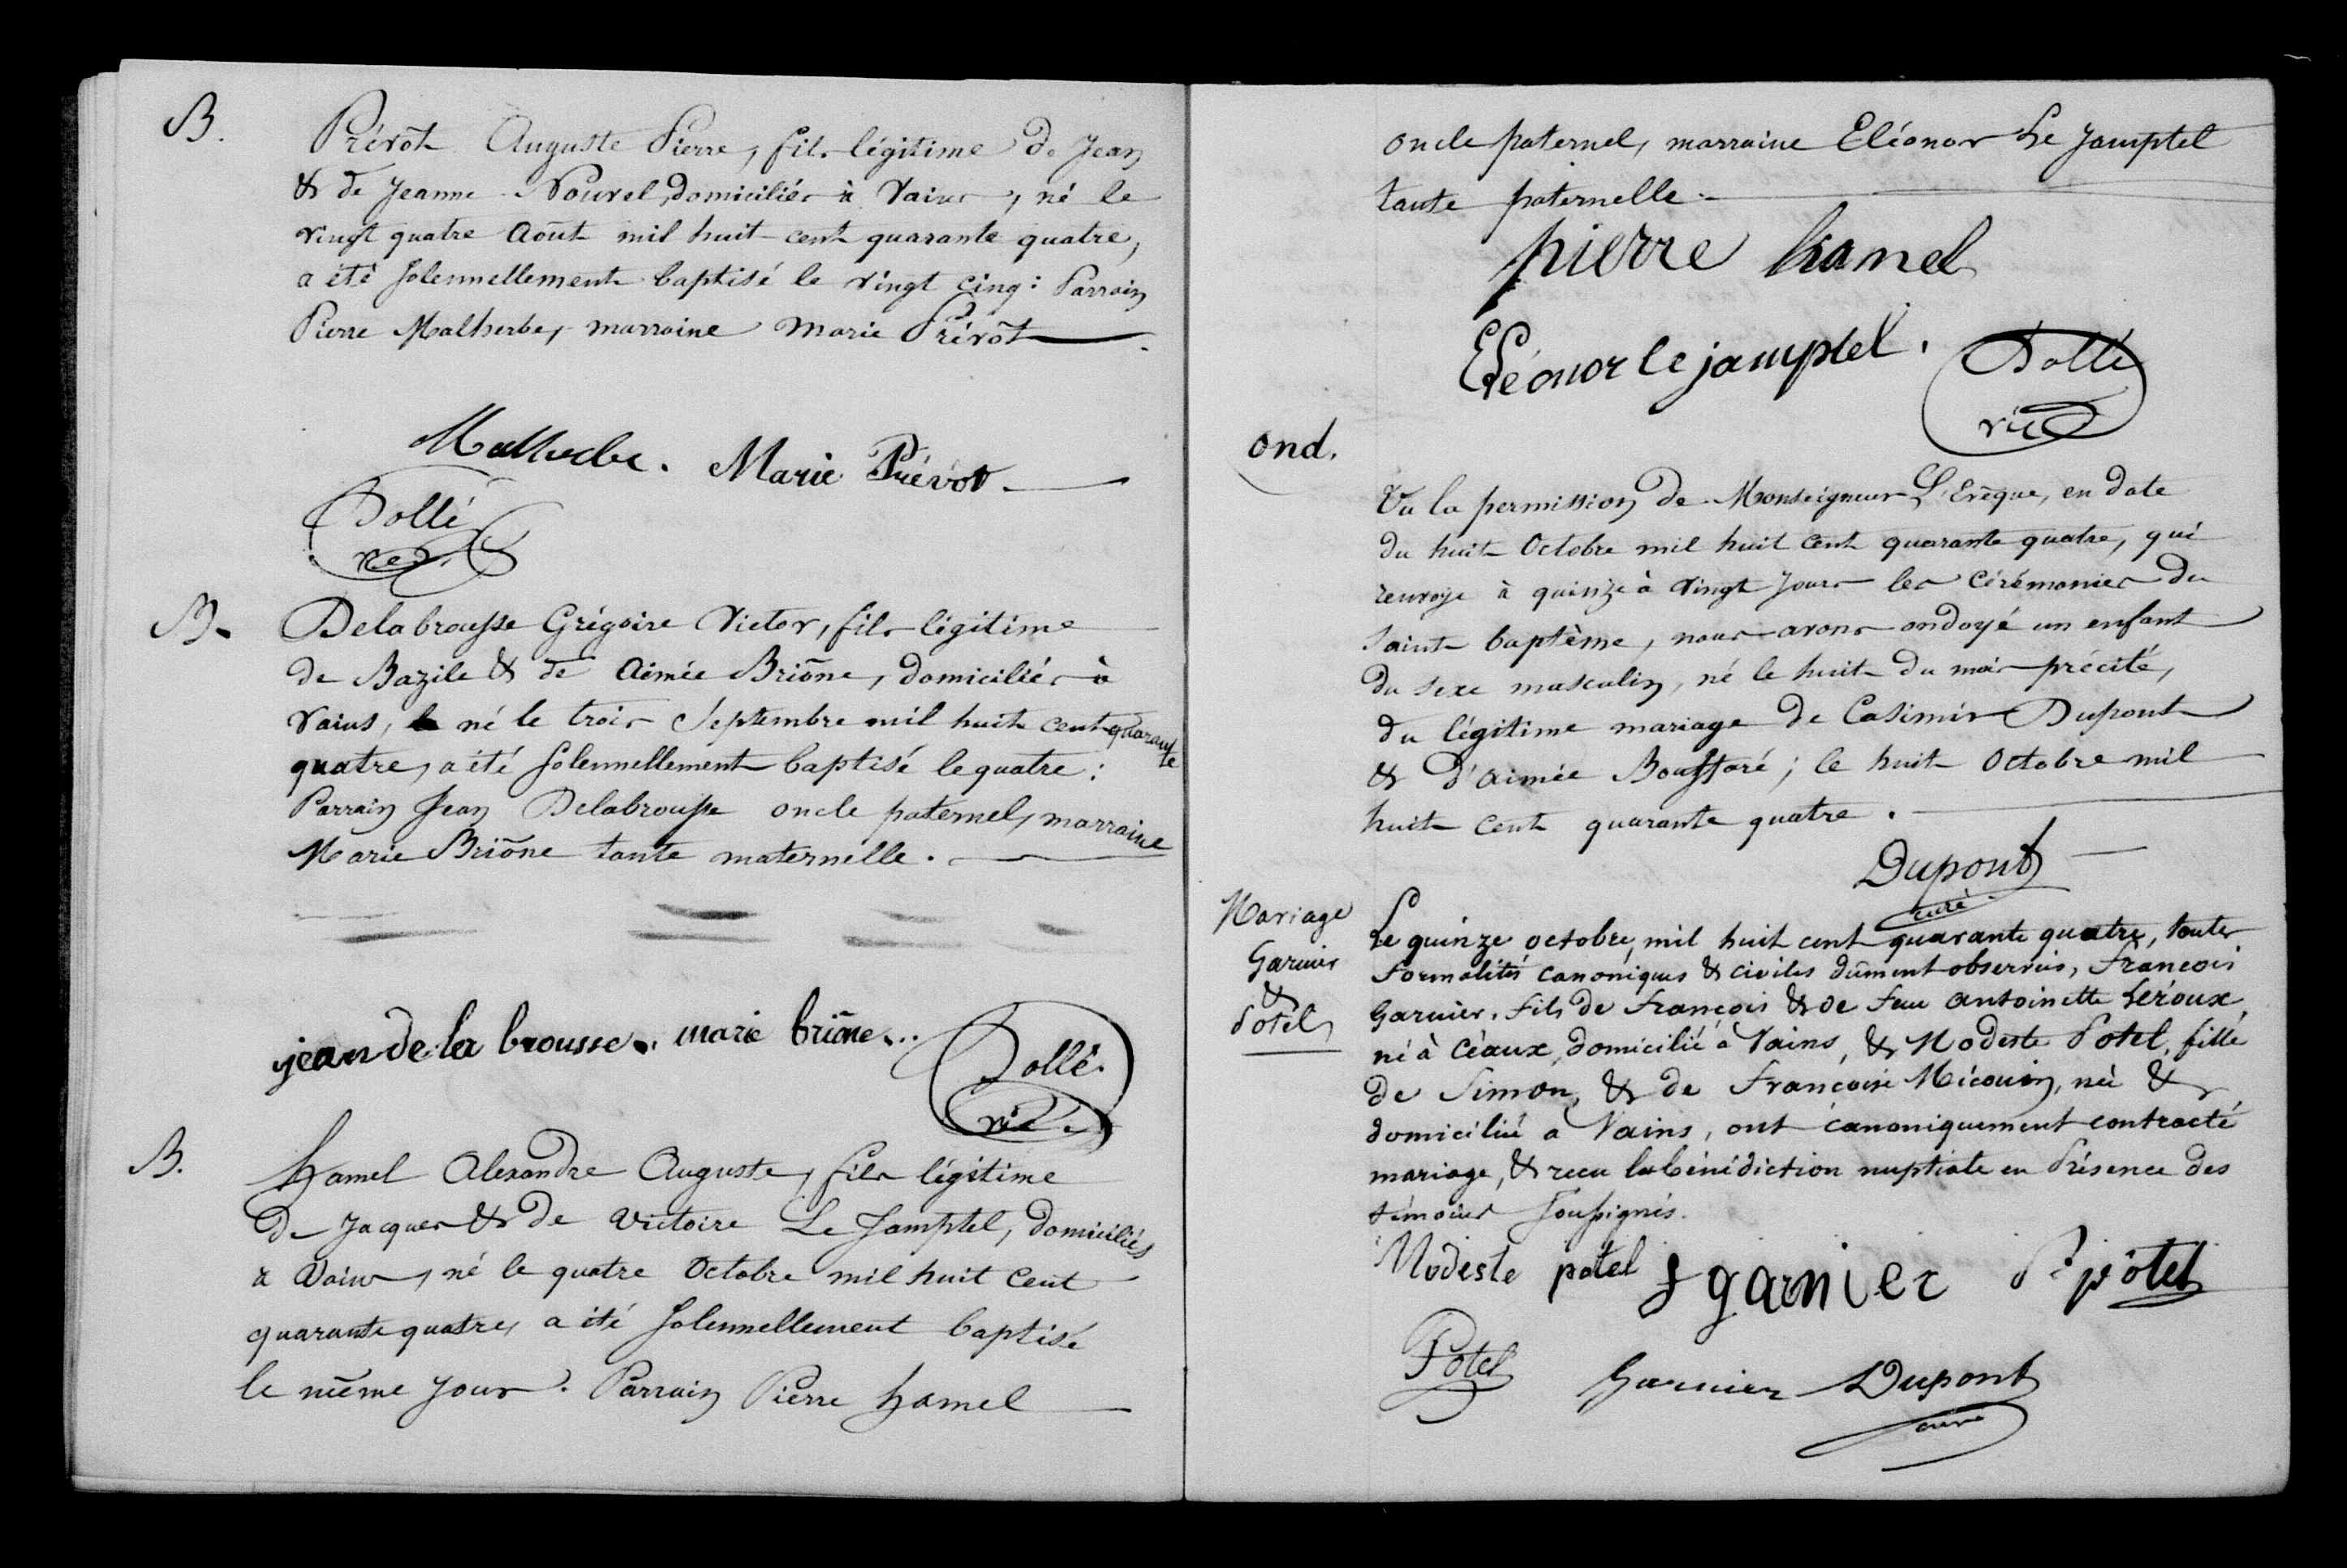 B.
Prévôt Auguste Pierre, fils légitime de Jean
& de Jeanne Nouvel, domiciliés à Vains, né le
vingt quatre Août mil huit cent quarante quatre,
a été solennellement baptisé le vingt cinq : Parrain
Pierre Malherbe, marraine Marie Prévôt
Malherbe. Marie Prévot
Dollé
vic.
B.
Delabrousse Grégoire Victor, fils légitime
de Bazile & de Aimée Briône, domiciliés à
Vains, né le trois Septembre mil huit cent quarante
quatre, a été solennellement baptisé le quatre :
Parrain Jean Delabrousse oncle paternel, marraine
Marie Briône tante maternelle.
jean de la brousse. marie briône...
Dollé
vic.
B.
hamel Alexandre Auguste, fils légitime
de Jacques & de Victoire Le Jamptel, domiciliés
à Vains, né le quatre Octobre mil huit cent
quarante quatre, a été solennellement baptisé
le même jour. Parrain Pierre hamel
oncle paternel, marraine Eléonor Le Jamptel
tante paternelle.
pierre hamel
Eléonor le jamptel.
Dollé
vic
ond.
Vu la permission de Monseigneur L'Evêque, en date
du huit Octobre mil huit cent quarante quatre, qui
renvoye à quinze à vingt jours les cérémonies du
saint baptême, nous avons ondoyé un enfant
du sexe masculin, né le huit du mois précité,
du légitime mariage de Casimir Dupont
& d'Aimée Bouffaré ; le huit Octobre mil
huit cent quarante quatre.
Dupont
curé
Mariage
Garnier
&
Potel
Le quinze octobre, mil huit cent quarante quatre, toutes
formalités canoniques & civiles dûment observées, François
Garnier, fils de François & de feue antoinette Léroux,
né à Céaux, domicilié à Vains, & Modeste Potel, fille
de Simon, & de Françoise Micouin, née &
domiciliée a Vains, ont canoniquement contracté
mariage, & recu la bénédiction nuptiale en Présence des
témoins soussignés.
Modeste potel f garnier pôtel
Potel
Garnier Dupont
curé